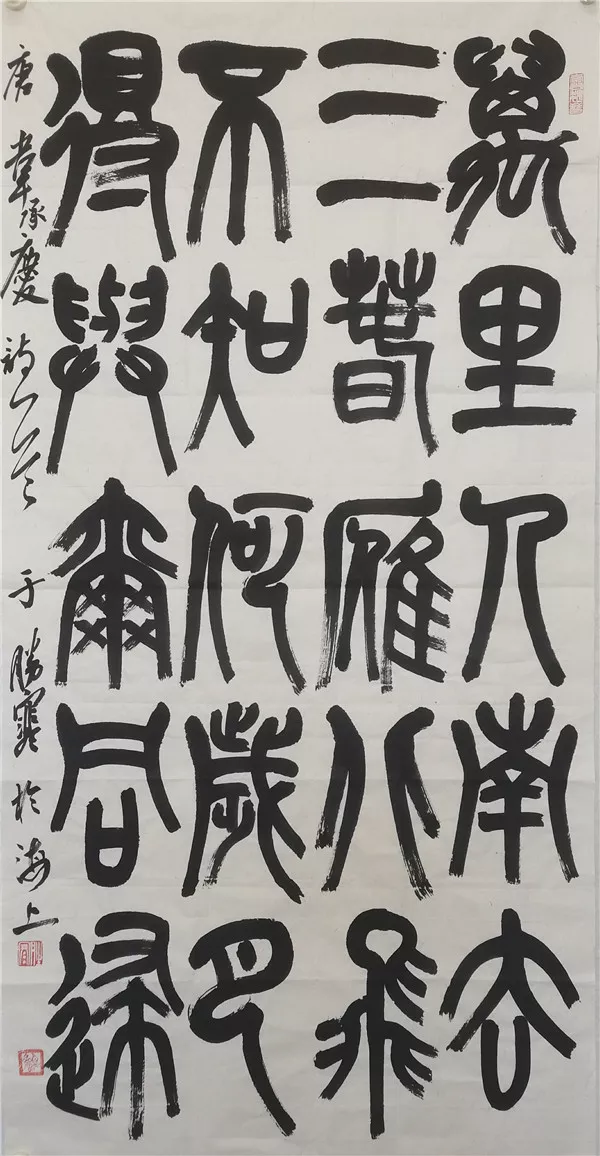 萬里人南去
三春雁北飛
不知何歲月
得與爾同歸
唐韋承慶詩一首 于勝 於海上